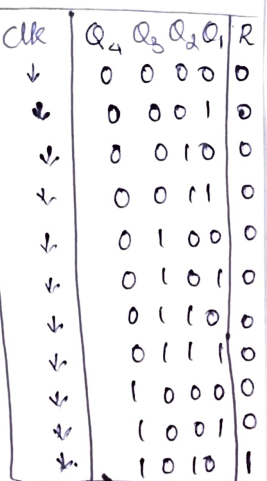 Clk Q4 Q3 Q2 Q1 R
↓ 0 0 0 0 0
↓ 0 0 0 1 0
↓ 0 0 1 0 0
↓ 0 0 1 1 0
↓ 0 1 0 0 0
↓ 0 1 0 1 0
↓ 0 1 1 0 0
↓ 0 1 1 1 0
↓ 1 0 0 0 0
↓ 1 0 0 1 0
↓ 1 0 1 0 1